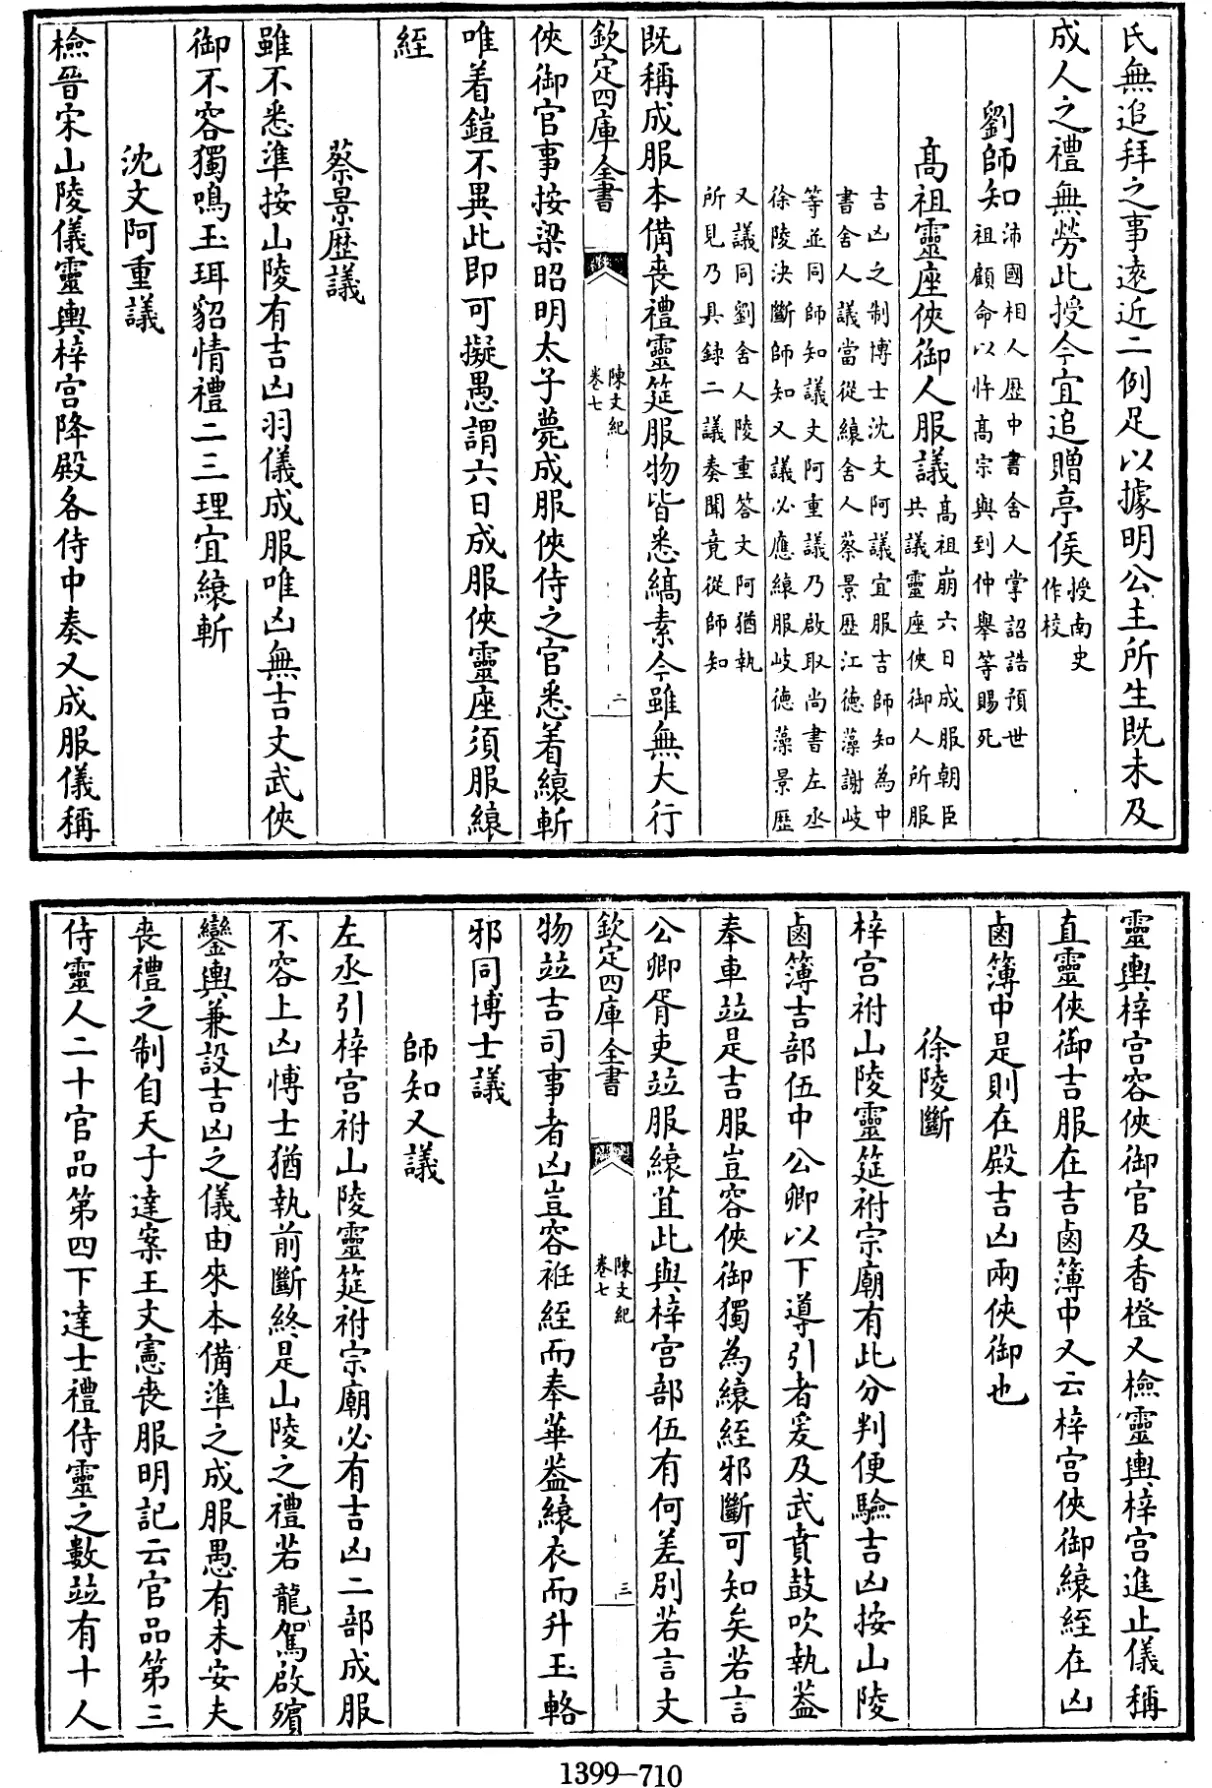 氏無追拜之事遠近二例足以據明公主所生既未及
成人之禮無勞此授今宜追贈亭侯授南史作校
劉師知沛國相人歴中書舍人掌詔誥預世祖顧命以忤髙宗與到仲舉等賜死
髙祖靈座俠御人服議髙祖崩六日成服朝臣共議靈座俠御人所服
吉凶之制博士沈文阿議宜服吉師知為中書舍人議當從縗舍人蔡景歴江德藻謝岐
等並同師知議文阿重議乃啟取尚書左丞徐陵決斷師知又議必應縗服岐德藻景歴
又議同劉舍人陵重答文阿猶執所見乃具録二議奏聞竟從師知
既稱成服本備喪禮靈筵服物皆悉縞素今雖無大行
欽定四庫全書
陳文紀
卷七
二
俠御官事按梁昭明太子薨成服俠侍之官悉着縗斬
唯着鎧不異此即可擬愚謂六日成服俠靈座須服縗
絰
蔡景歴議
雖不悉準按山陵有吉凶羽儀成服唯凶無吉文武俠
御不容獨鳴玉珥貂情禮二三理宜縗斬
沈文阿重議
檢晉宋山陵儀靈輿梓宫降殿各侍中奏又成服儀稱
靈輿梓宫容俠御官及香橙又檢靈輿梓宫進止儀稱
直靈俠御吉服在吉鹵簿中又云梓宫俠御縗絰在凶
鹵簿中是則在殿吉凶兩俠御也
徐陵斷
梓宫祔山陵靈筵祔宗廟有此分判便驗吉凶按山陵
鹵簿吉部伍中公卿以下導引者爰及武賁鼓吹執葢
奉車竝是吉服豈容俠御獨為縗絰邪斷可知矣若言
公卿胥吏竝服縗苴此與梓宫部伍有何差别若言文
欽定四庫全書
陳文紀
卷七
三
物竝吉司事者凶豈容衽絰而奉華葢縗衣而升玉輅
邪同博士議
師知又議
左丞引梓宫祔山陵靈筵祔宗廟必有吉凶二部成服
不容上凶博士猶執前斷終是山陵之禮若龍駕啟殯
鑾輿兼設吉凶之儀由來本備準之成服愚有未安夫
喪禮之制自天子達案王文憲喪服明記云官品第三
侍靈人二十官品第四下達士禮侍靈之數竝有十人
1399—710